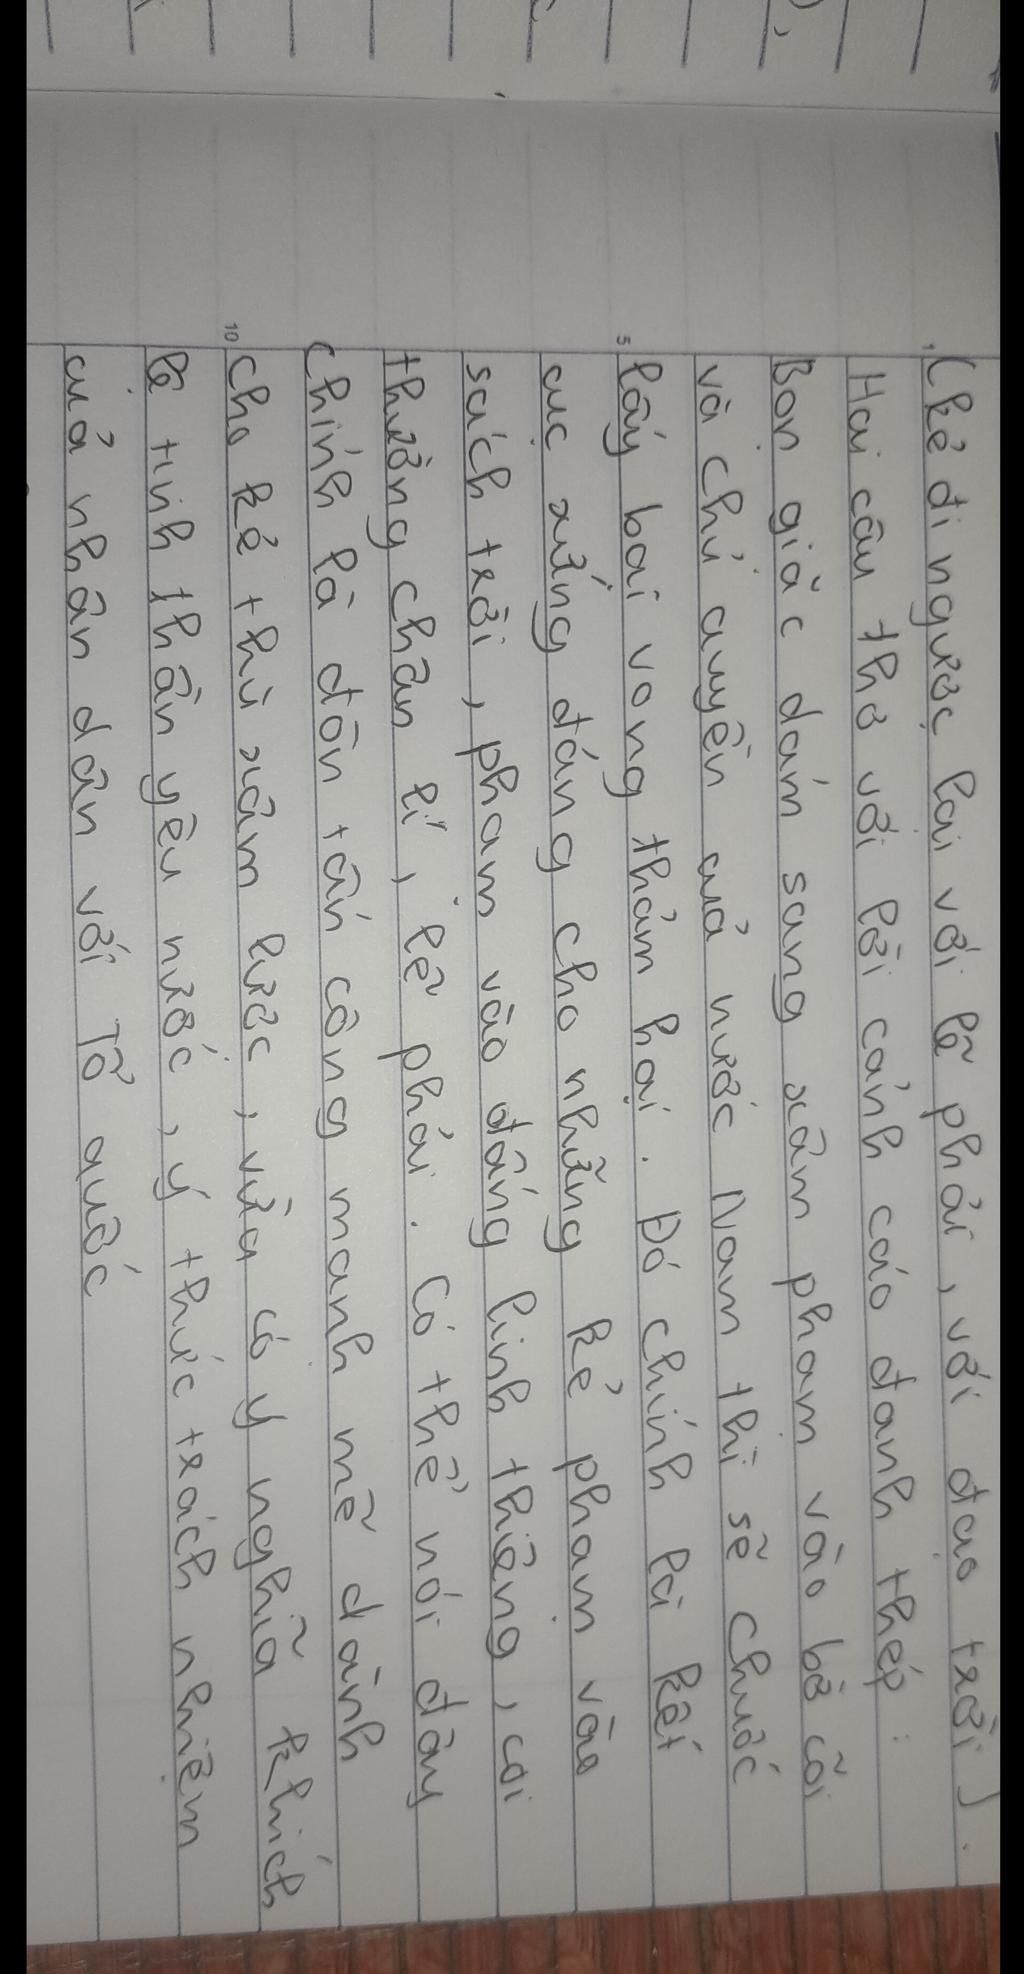 (kẻ đi ngược lại với lẽ phải, với đạo trời).
Hai câu thơ với lời cảnh cáo đanh thép:
Bọn giặc dám sang xâm phạm vào bờ cõi
và chủ quyền của nước Nam thì sẽ chuốc
lấy bại vong thảm hại. Đó chính là kết
cục xứng đáng cho những kẻ phạm vào
sách trời, phạm vào đấng linh thiêng, coi
thường chân lí, lẽ phải. Có thể nói đây
chính là đòn tấn công mạnh mẽ dành
cho kẻ thù xâm lược, vừa có ý nghĩa khích
lệ tinh thần yêu nước, ý thức trách nhiệm
của nhân dân với Tổ quốc